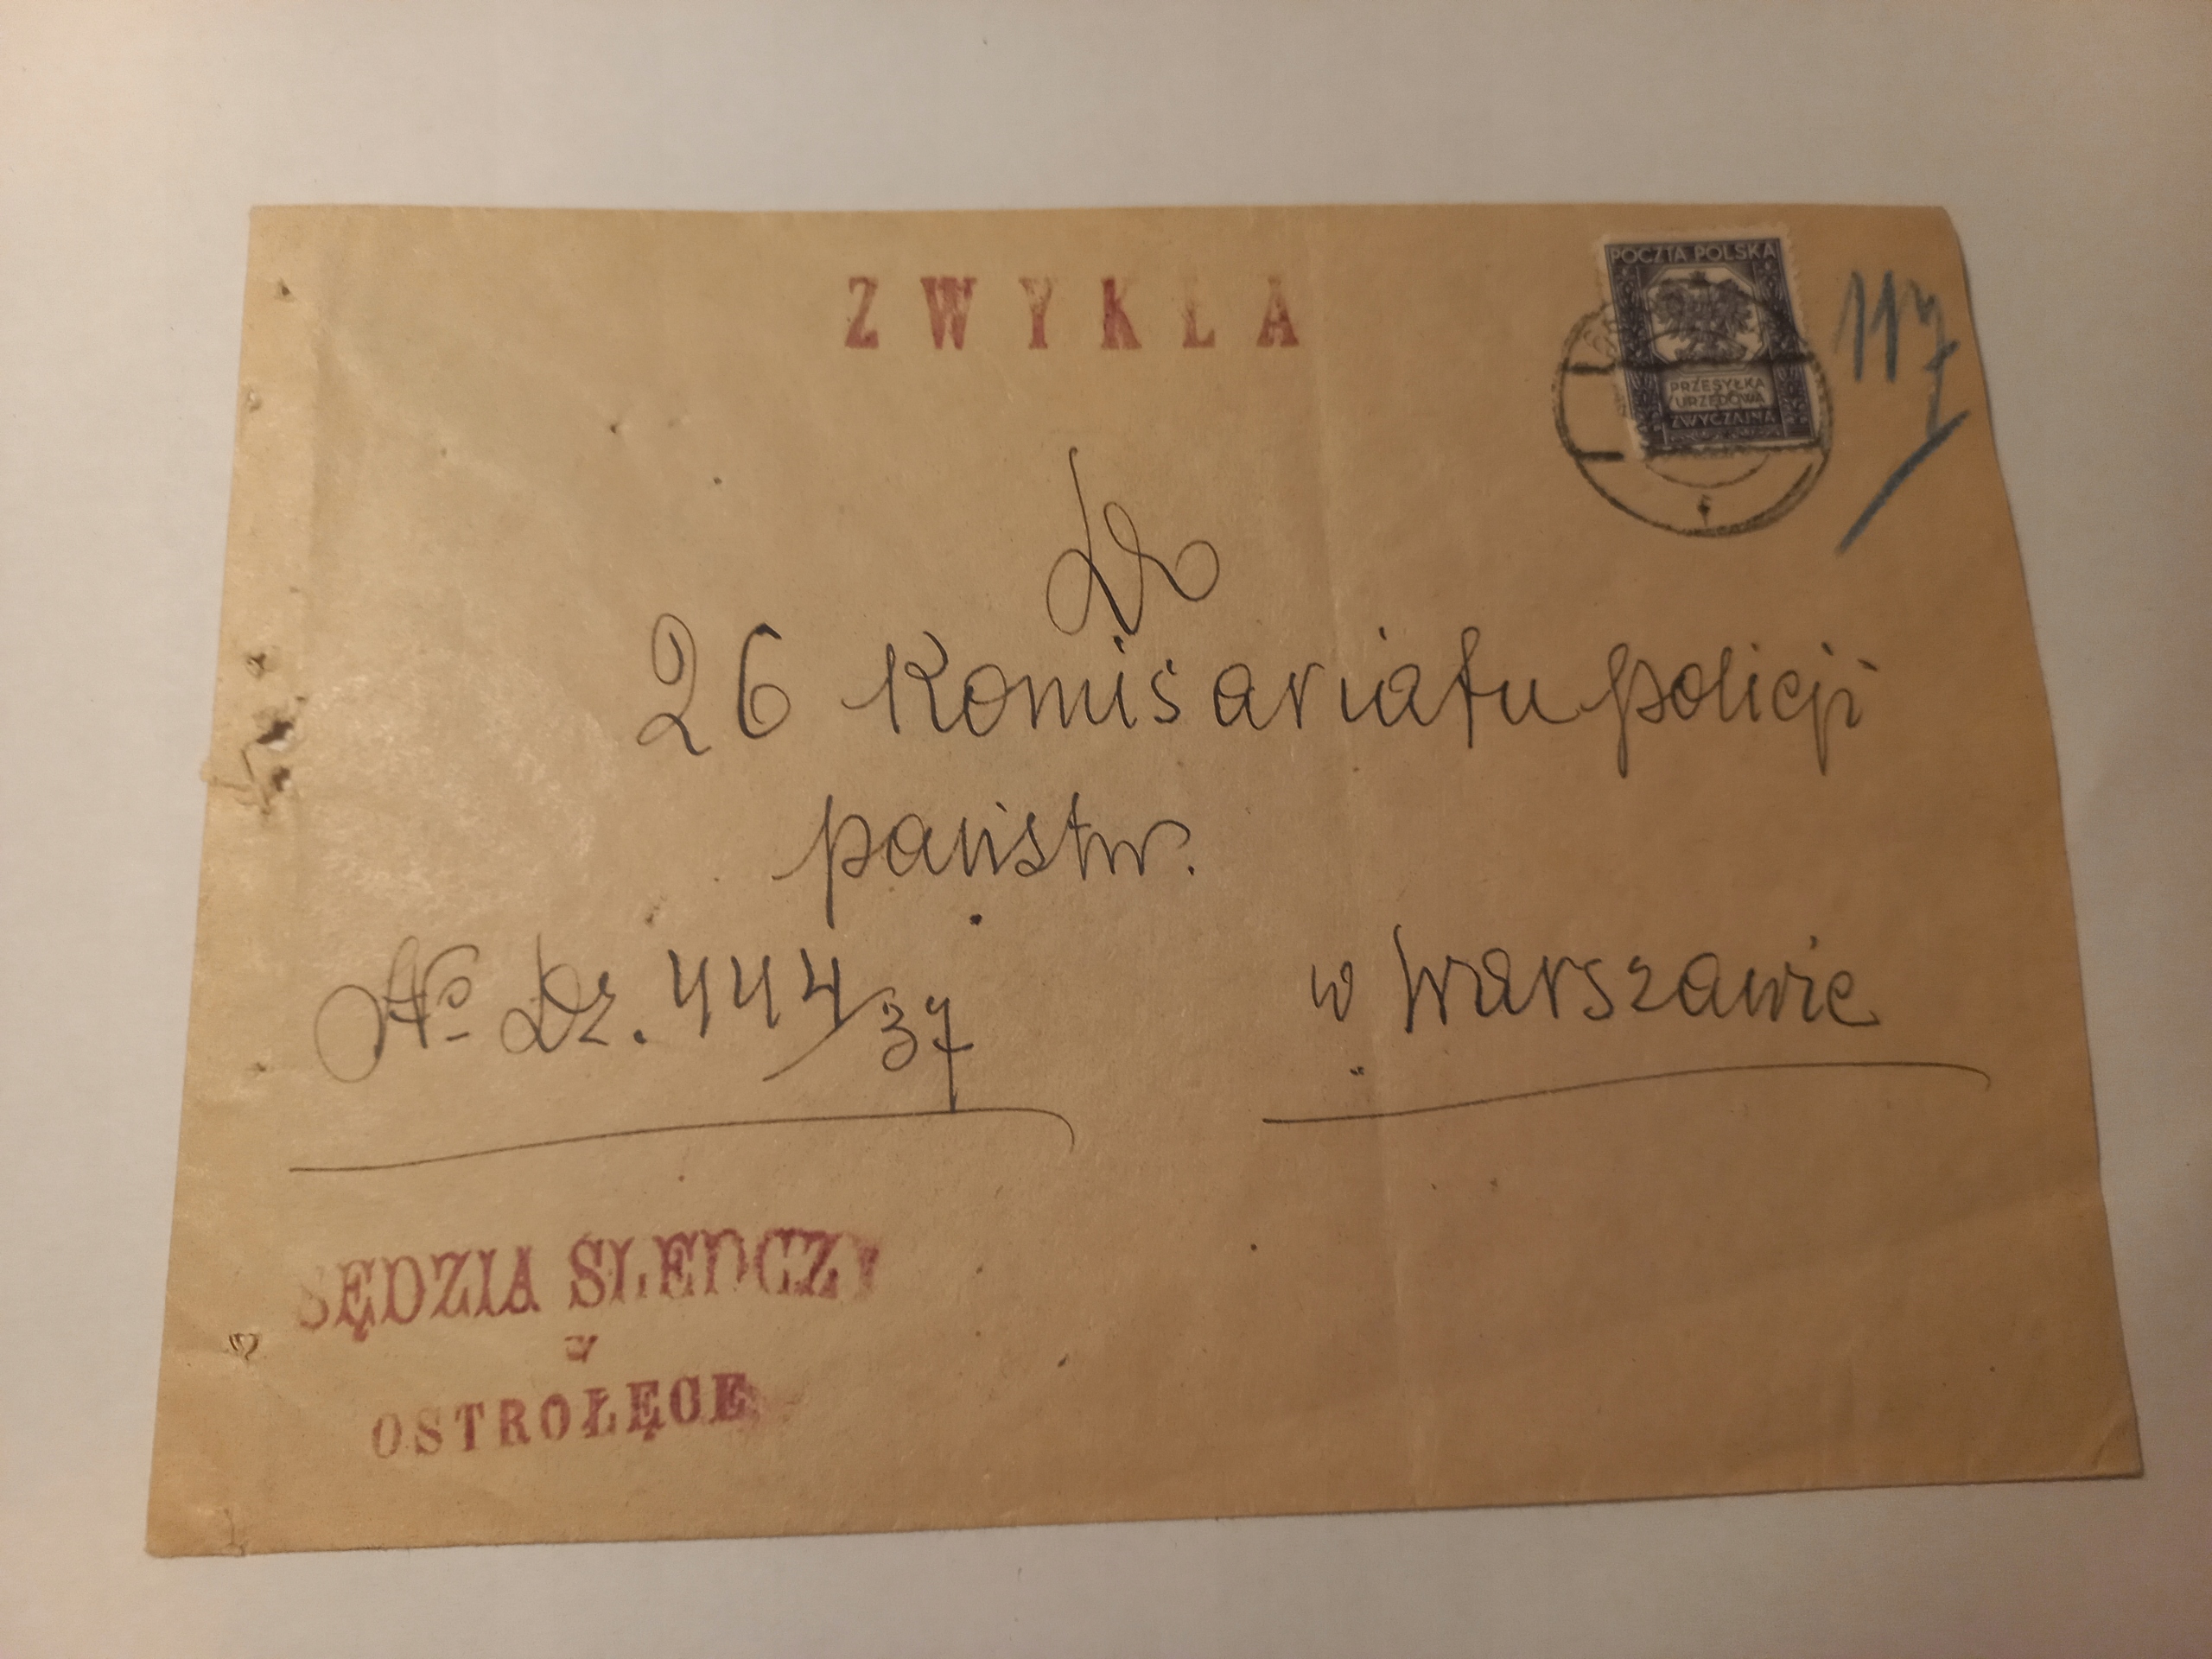 ZWYKŁA
POCZTA POLSKA
PRZESYŁKA
URZĘDOWA
ZWYCZAJNA
117
Do
26 Komisariatu policji
państw.
No Dz. 444/37
w Warszawie
SĘDZIA ŚLEDCZY
w
OSTROŁĘCE